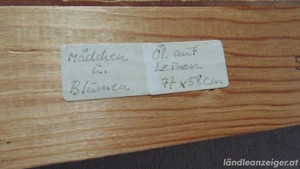 Mädchen
in
Blumen
Öl auf
Leinen
77 x 58 cm
ländleanzeiger.at